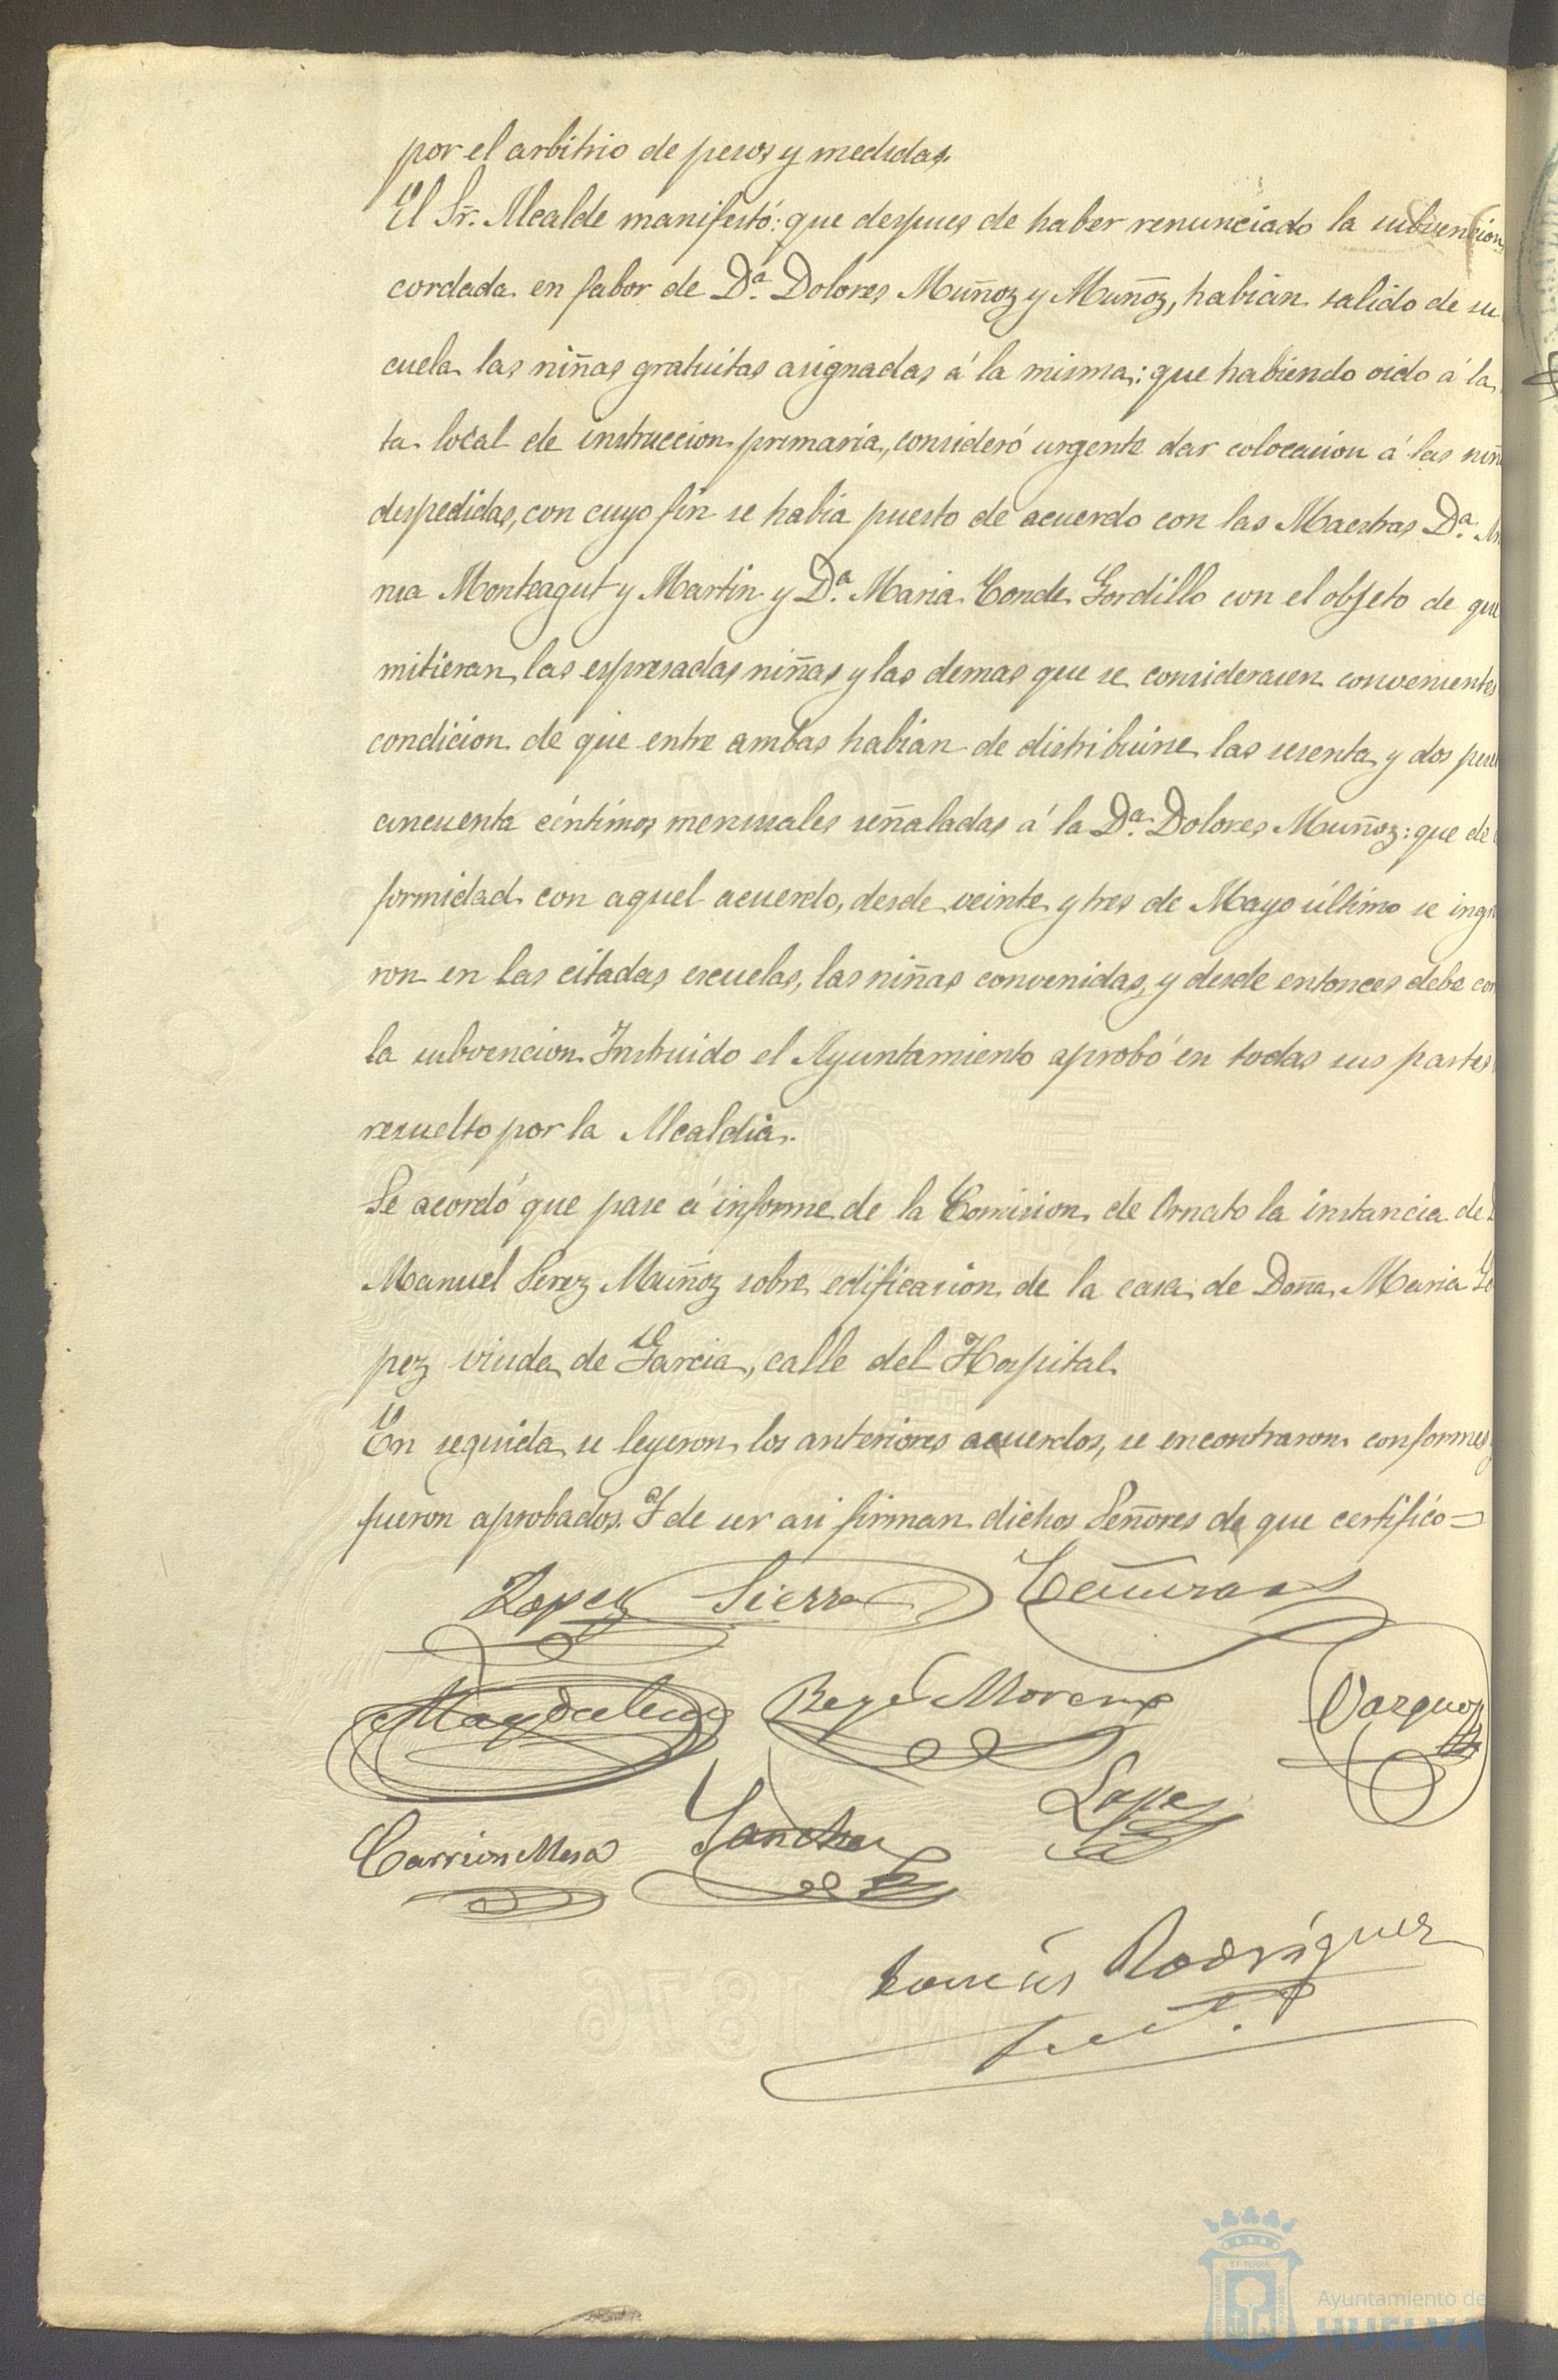 por el arbitrio de pesos y medidas.
El Sr. Alcalde manifestó: que despues de haber renunciado la subvencion
cordada en fabor de Dª. Dolores Muñoz y Muñoz, habian salido de su
cuela las niñas gratuitas asignadas á la misma: que habiendo oido á la
ta local de instruccion primaria, consideró urgente dar colocacion á las niñ
despedidas, con cuyo fin se habia puesto de acuerdo con las Maestras Dª.
nia Monteagut y Martin y Dª. Maria Conde Gordillo con el objeto de que
mitieran las espresadas niñas y las demas que se considerasen convenientes
condicion de que entre ambas habian de distribuirse las sesenta y dos pese
cincuenta céntimos mensuales señaladas á la Dª. Dolores Muñoz: que de
formidad con aquel acuerdo, desde veinte y tres de Mayo último se ingre
ron en las citadas escuelas, las niñas convenidas, y desde entonces debe cor
la subvencion. Instruido el Ayuntamiento aprobó en todas sus partes
resuelto por la Alcaldia.
Se acordó que pase á informe de la Comision de Ornato la instancia de
Manuel Perez Muñoz sobre edificacion de la casa de Doña Maria Lo
pez viuda de Garcia, calle del Hospital.
En seguida se leyeron los anteriores acuerdos, se encontraron conformes y
fueron aprobados. Y de ser asi firman dichos Señores de que certifico=
Lopez Sierra
Magdalena Rey Moreno Vazquez
Carrion Mesa Sanchez Lopez
Tomás Rodriguez
AÑO 1876
Ayuntamiento de
HUELVA